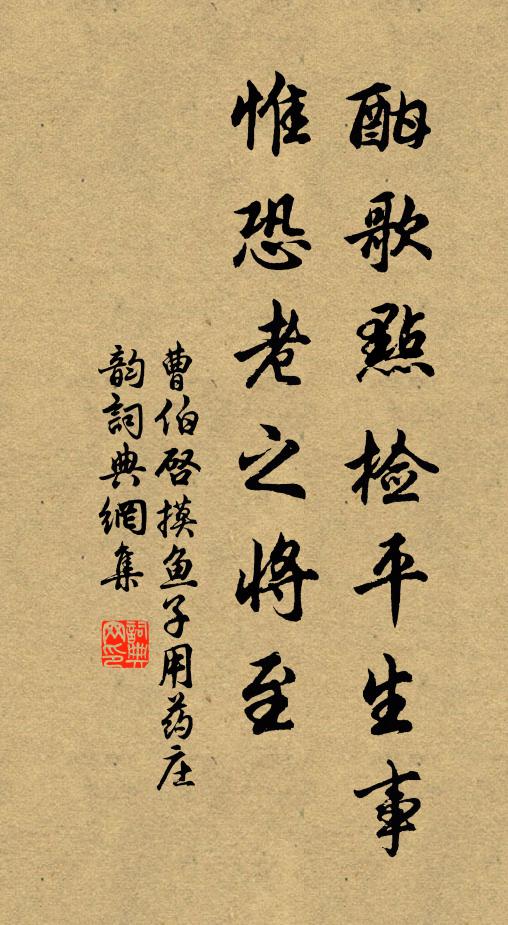 酣歌點检平生事
惟恐老之将至
曹伯启摸鱼子用药庄
韵詞典網集
詞典网印